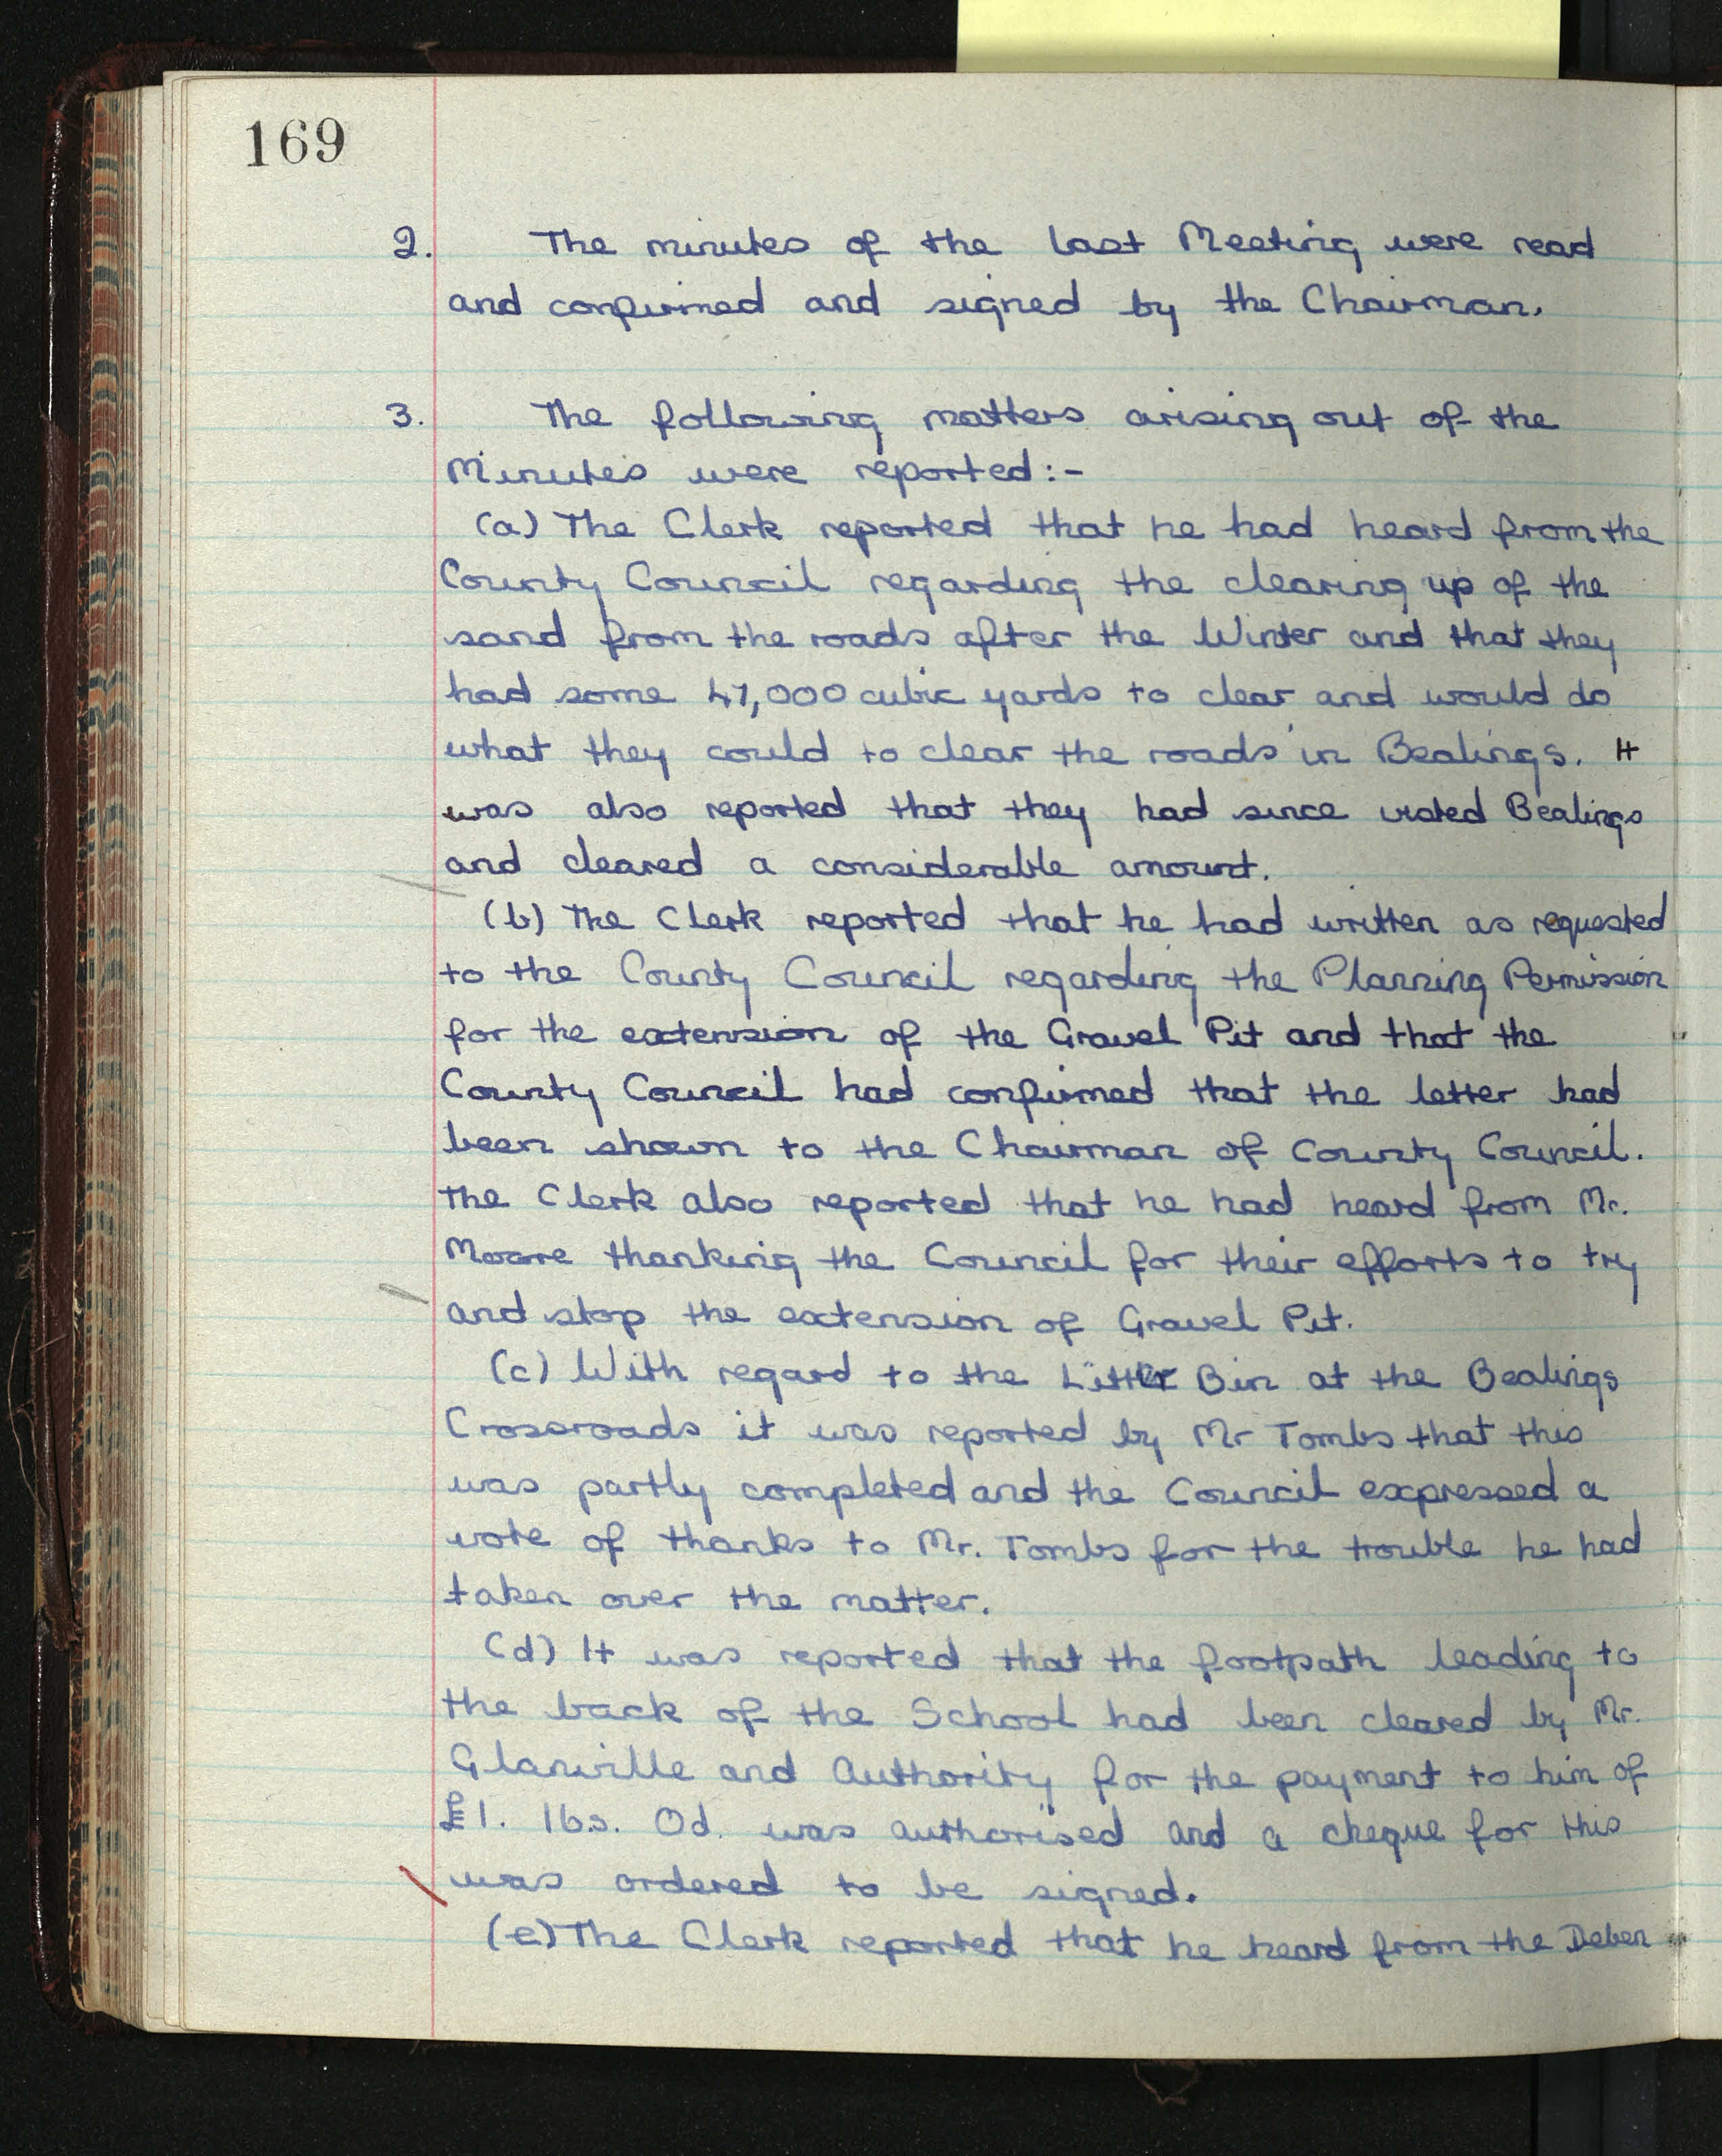 169
2. The minutes of the last Meeting were read
and confirmed and signed by the Chairman.
3. The following matters arising out of the
Minutes were reported:-
(a) The Clerk reported that he had heard from the
County Council regarding the clearing up of the
sand from the roads after the Winter and that they
had some 47,000 cubic yards to clear and would do
what they could to clear the roads in Bealings. It
was also reported that they had since visted Bealings
and cleared a considerable amount.
(b) The Clerk reported that he had written as requested
to the County Council regarding the Planning Permission
for the extension of the Gravel Pit and that the
County Council had confirmed that the letter had
been shown to the Chairman of County Council.
The Clerk also reported that he had heard from Mr.
Moore thanking the Council for their efforts to try
and stop the extension of Gravel Pit.
(c) With regard to the Litter Bin at the Bealings
Crossroads it was reported by Mr Tombs that this
was partly completed and the Council expressed a
vote of thanks to Mr. Tombs for the trouble he had
taken over the matter.
(d) It was reported that the footpath leading to
the back of the School had been cleared by Mr.
Glanville and Authority for the payment to him of
£1. 16s. 0d. was authorised and a cheque for this
was ordered to be signed.
(e) The Clerk reported that he heard from the Deben